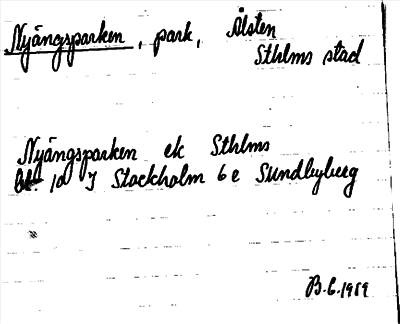 Nyängsparken, park, Ålsten
Sthlms stad
Nyängsparken ek Sthlms
bl. 10 I Stockholm 6 e Sundbyberg
B.C. 1959